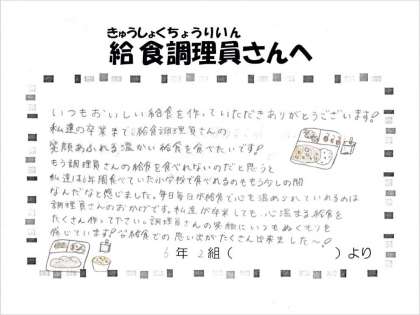 きゅうしょくちょうりいん
給食調理員さんへ
いつもおいしい給食を作っていただきありがとうございます!
私達の卒業まで給食調理員さんの
笑顔あふれる温かい給食を食べたいです!
もう調理員さんの給食を食べれないのだと思うと
私達は6年間食べていた小学校で食べれるのももう少しの間
なんだなと感じました。毎日毎日が給食で心も温められているのは
調理員さんのおかげです。私達が卒業しても、心温まる給食を
たくさん作ってください。調理員さんの笑顔にいつもぬくもりを
感じています!給食での思い出がたくさん出来ました〜!
6年2組( )より